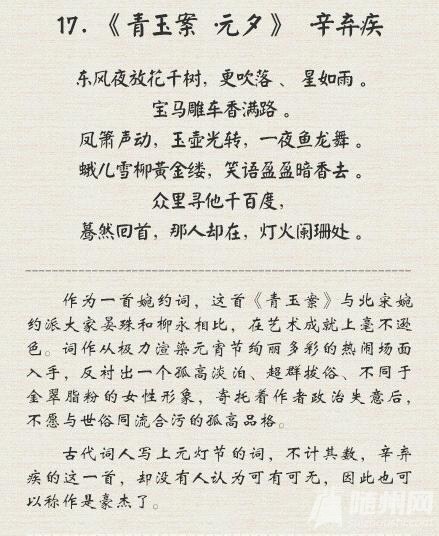 17.《青玉案·元夕》 辛弃疾
东风夜放花千树，更吹落、星如雨。
宝马雕车香满路。
凤箫声动，玉壶光转，一夜鱼龙舞。
蛾儿雪柳黄金缕，笑语盈盈暗香去。
众里寻他千百度，
蓦然回首，那人却在，灯火阑珊处。
作为一首婉约词，这首《青玉案》与北宋婉
约派大家晏殊和柳永相比，在艺术成就上毫不逊
色。词作从极力渲染元宵节绚丽多彩的热闹场面
入手，反衬出一个孤高淡泊、超群拔俗、不同于
金翠脂粉的女性形象，寄托着作者政治失意后，
不愿与世俗同流合污的孤高品格。
古代词人写上元灯节的词，不计其数，辛弃
疾的这一首，却没有人认为可有可无，因此也可
以称作是豪杰了。
随州网